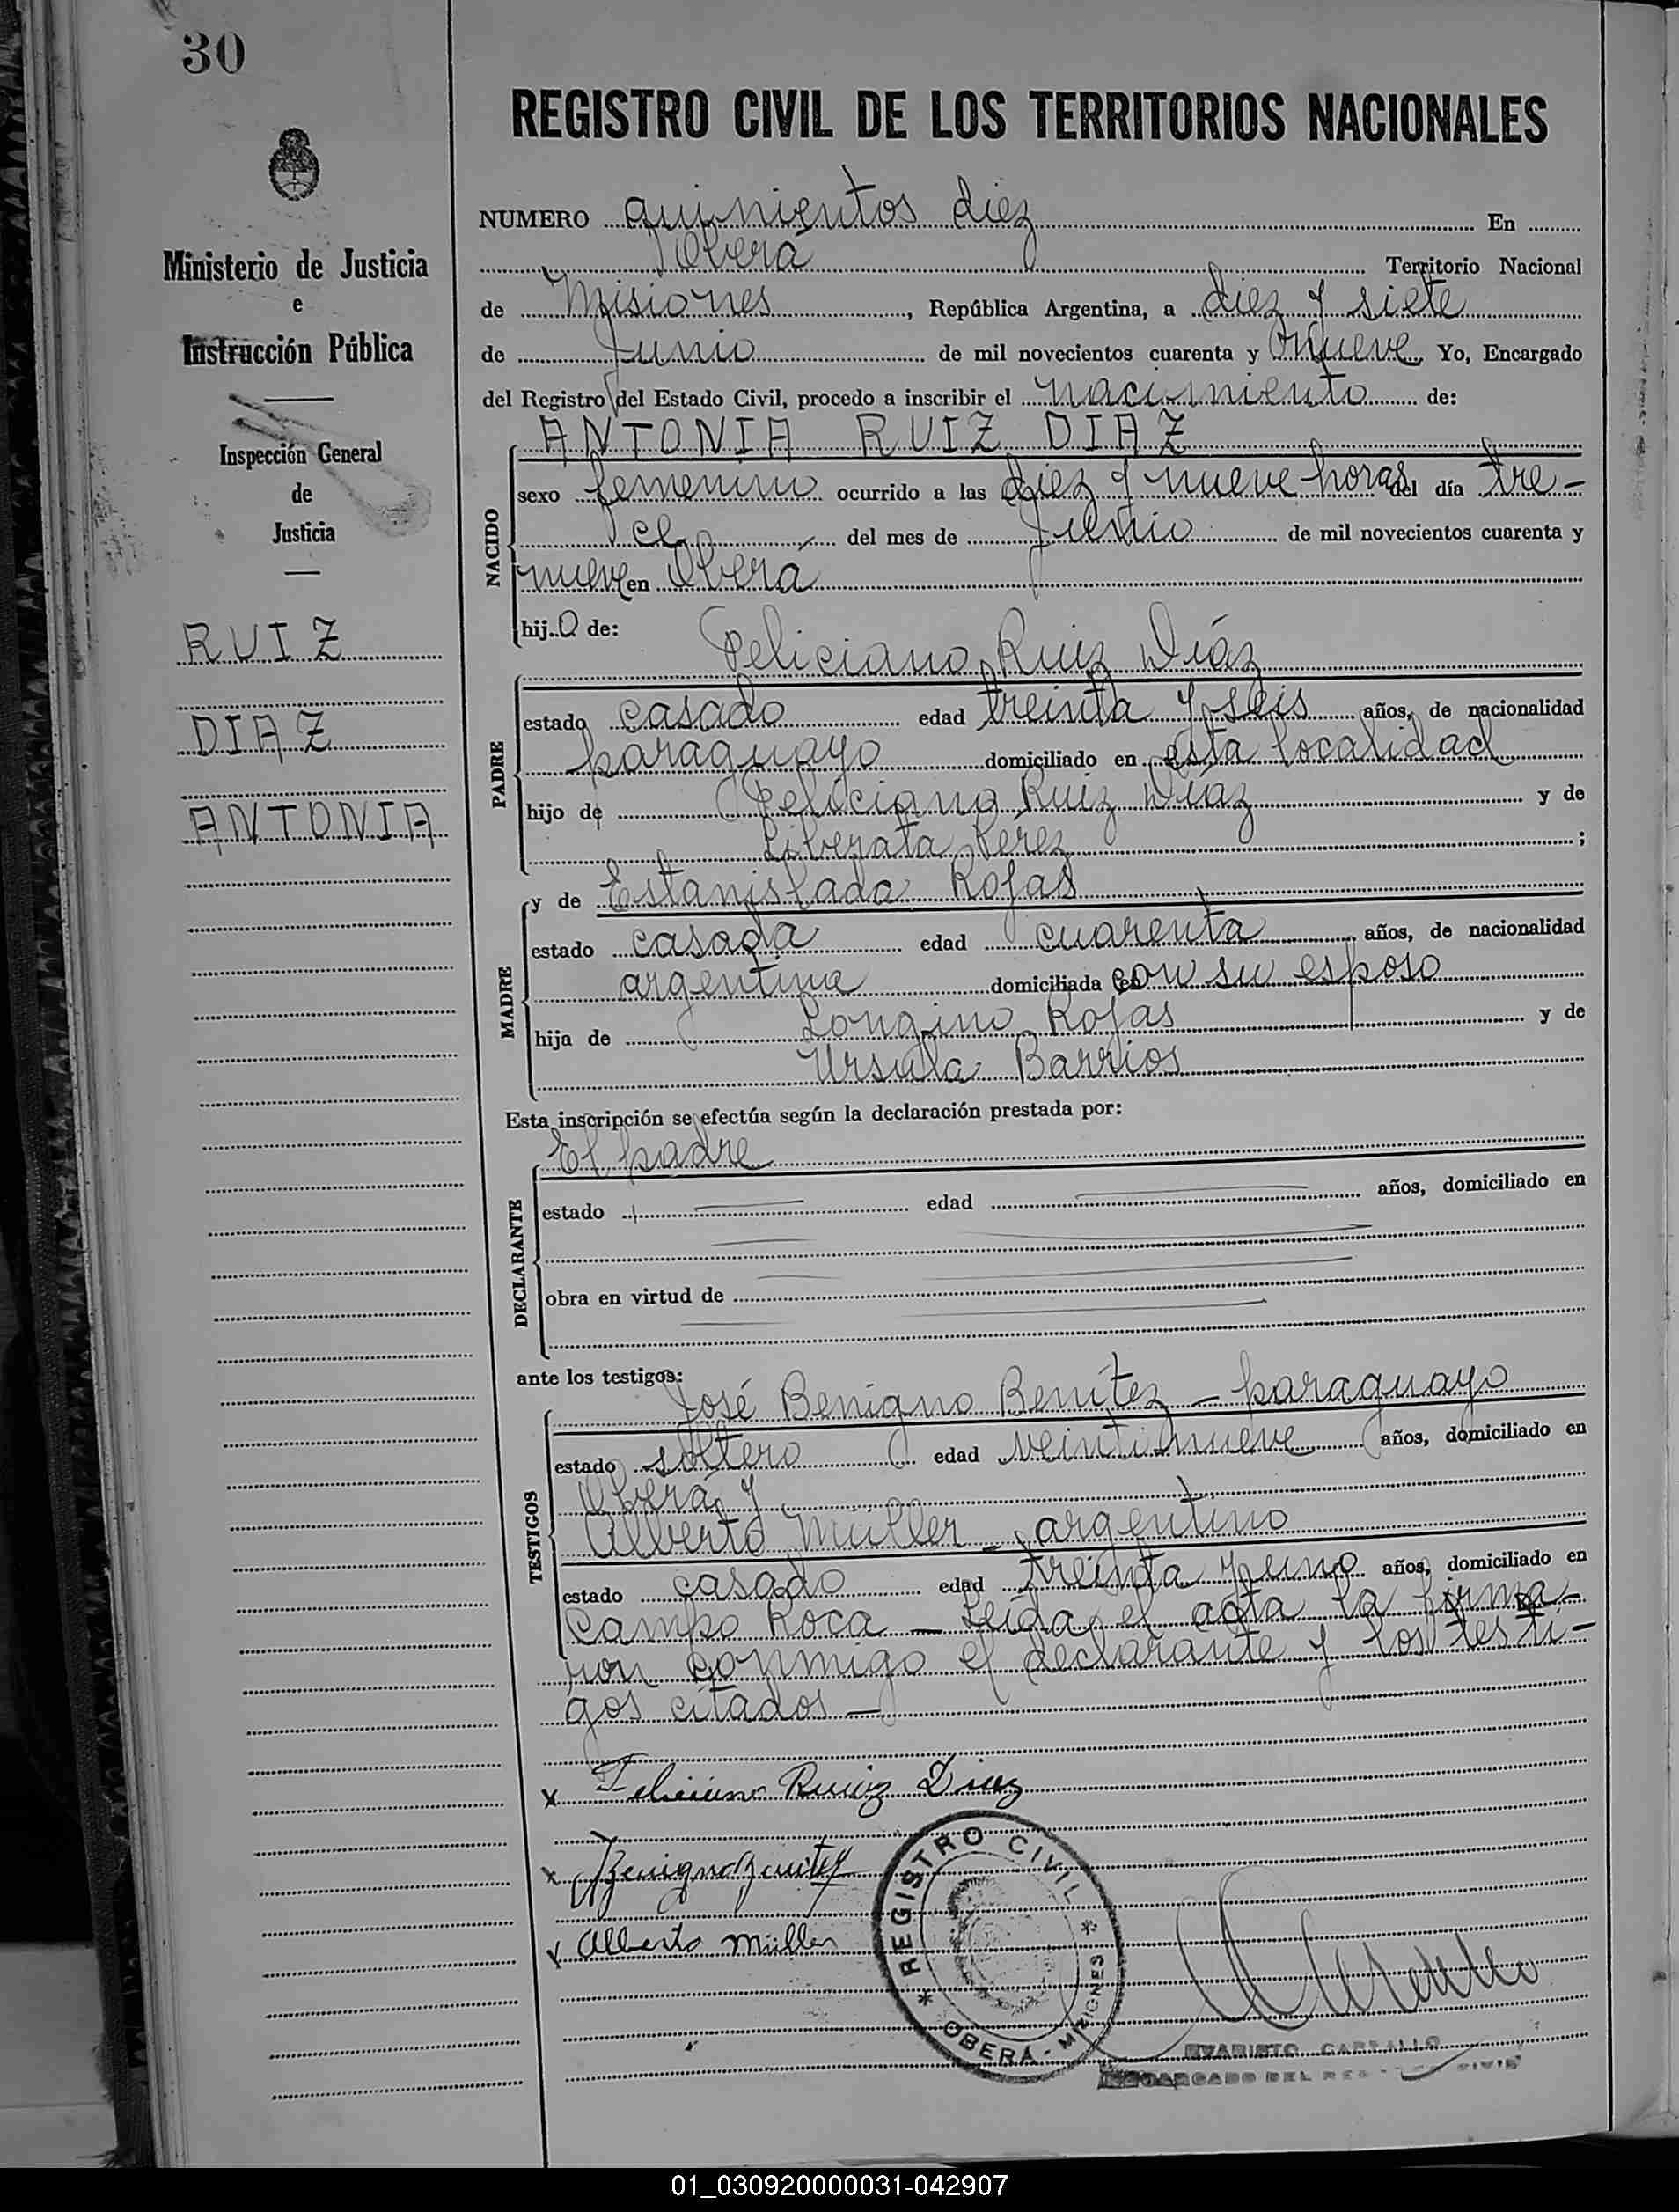 30
REGISTRO CIVIL DE LOS TERRITORIOS NACIONALES
Ministerio de Justicia
e
Instrucción Pública
Inspección General
de
Justicia
RUIZ
DIAZ
ANTONIA
NUMERO quinientos diez En
Oberá Territorio Nacional
de Misiones, República Argentina, a diez y siete
de Junio de mil novecientos cuarenta y nueve Yo, Encargado
del Registro del Estado Civil, procedo a inscribir el nacimiento de:
ANTONIA RUIZ DIAZ
NACIDO
sexo femenino ocurrido a las diez y nueve horas del día tre-
ce del mes de Junio de mil novecientos cuarenta y
nueve en Oberá
hija de:
Feliciano Ruiz Díaz
PADRE
estado casado edad treinta y seis años, de nacionalidad
paraguayo domiciliado en esta localidad
hijo de Feliciano Ruiz Díaz y de
Liberata Pérez ;
MADRE
y de Estanislada Rojas
estado casada edad cuarenta años, de nacionalidad
argentina domiciliada con su esposo
hija de Longino Rojas y de
Ursula Barrios
Esta inscripción se efectúa según la declaración prestada por:
El padre
DECLARANTE
estado edad años, domiciliado en
obra en virtud de
ante los testigos:
José Benigno Benítez – paraguayo
TESTIGOS
estado soltero edad veintinueve años, domiciliado en
Oberá y
Alberto Müller – argentino
estado casado edad treinta y uno años, domiciliado en
Campo Roca – Leída el acta la firma-
ron conmigo el declarante y los testi-
gos citados –
x Feliciano Ruiz Diaz
x Benigno Benitez
x Alberto Müller
REGISTRO CIVIL
* OBERÁ - MISIONES *
EVARISTO CARBALLO
ENCARGADO DEL REG CIVIL
01_030920000031-042907